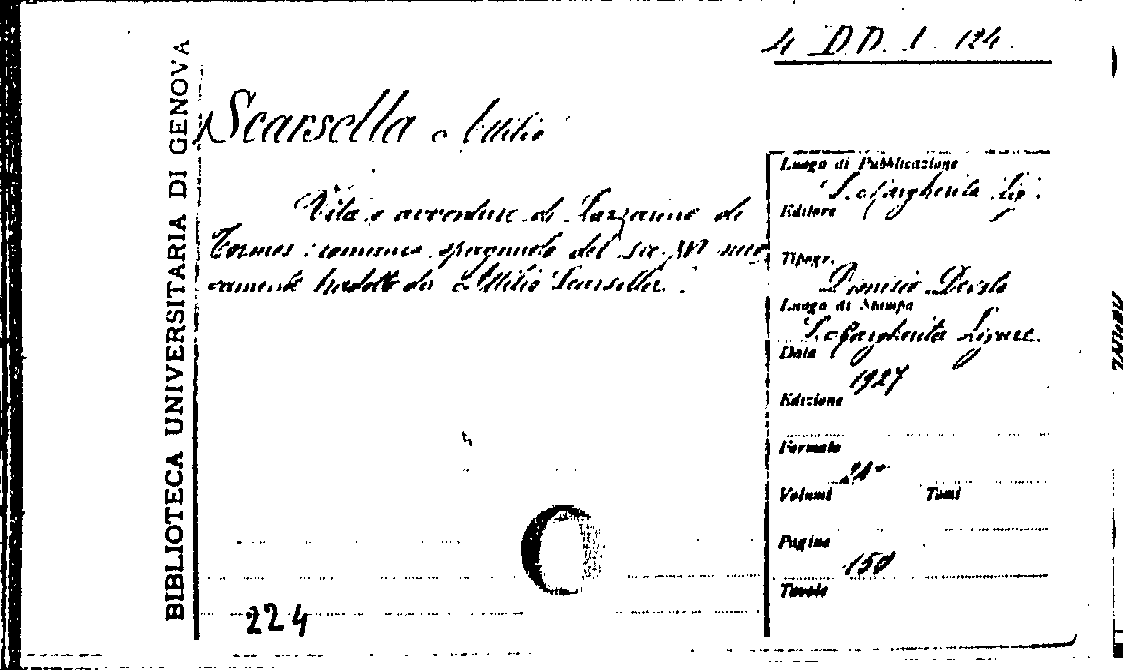 4 DD. 1. 124.
BIBLIOTECA UNIVERSITARIA DI GENOVA
Scarsella Attilio
Vita e avventure di Lazzarino de
Tormes: romanzo spagnuolo del sec. XVI nuo,
vamente tradotto da Attilio Scarsella.
Luogo di Pubblicazione
S. Margherita Lig.
Editore
Tipogr.
Dionisio Devoto
Luogo di Stampa
S. Margherita Ligure.
Data
1927
Edizione
Formato
24°
Volumi Tomi
Pagine
150
Tavole
224